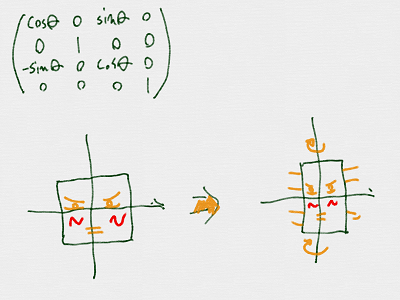 cosθ 0 sinθ 0
0 1 0 0
-sinθ 0 cosθ 0
0 0 0 1